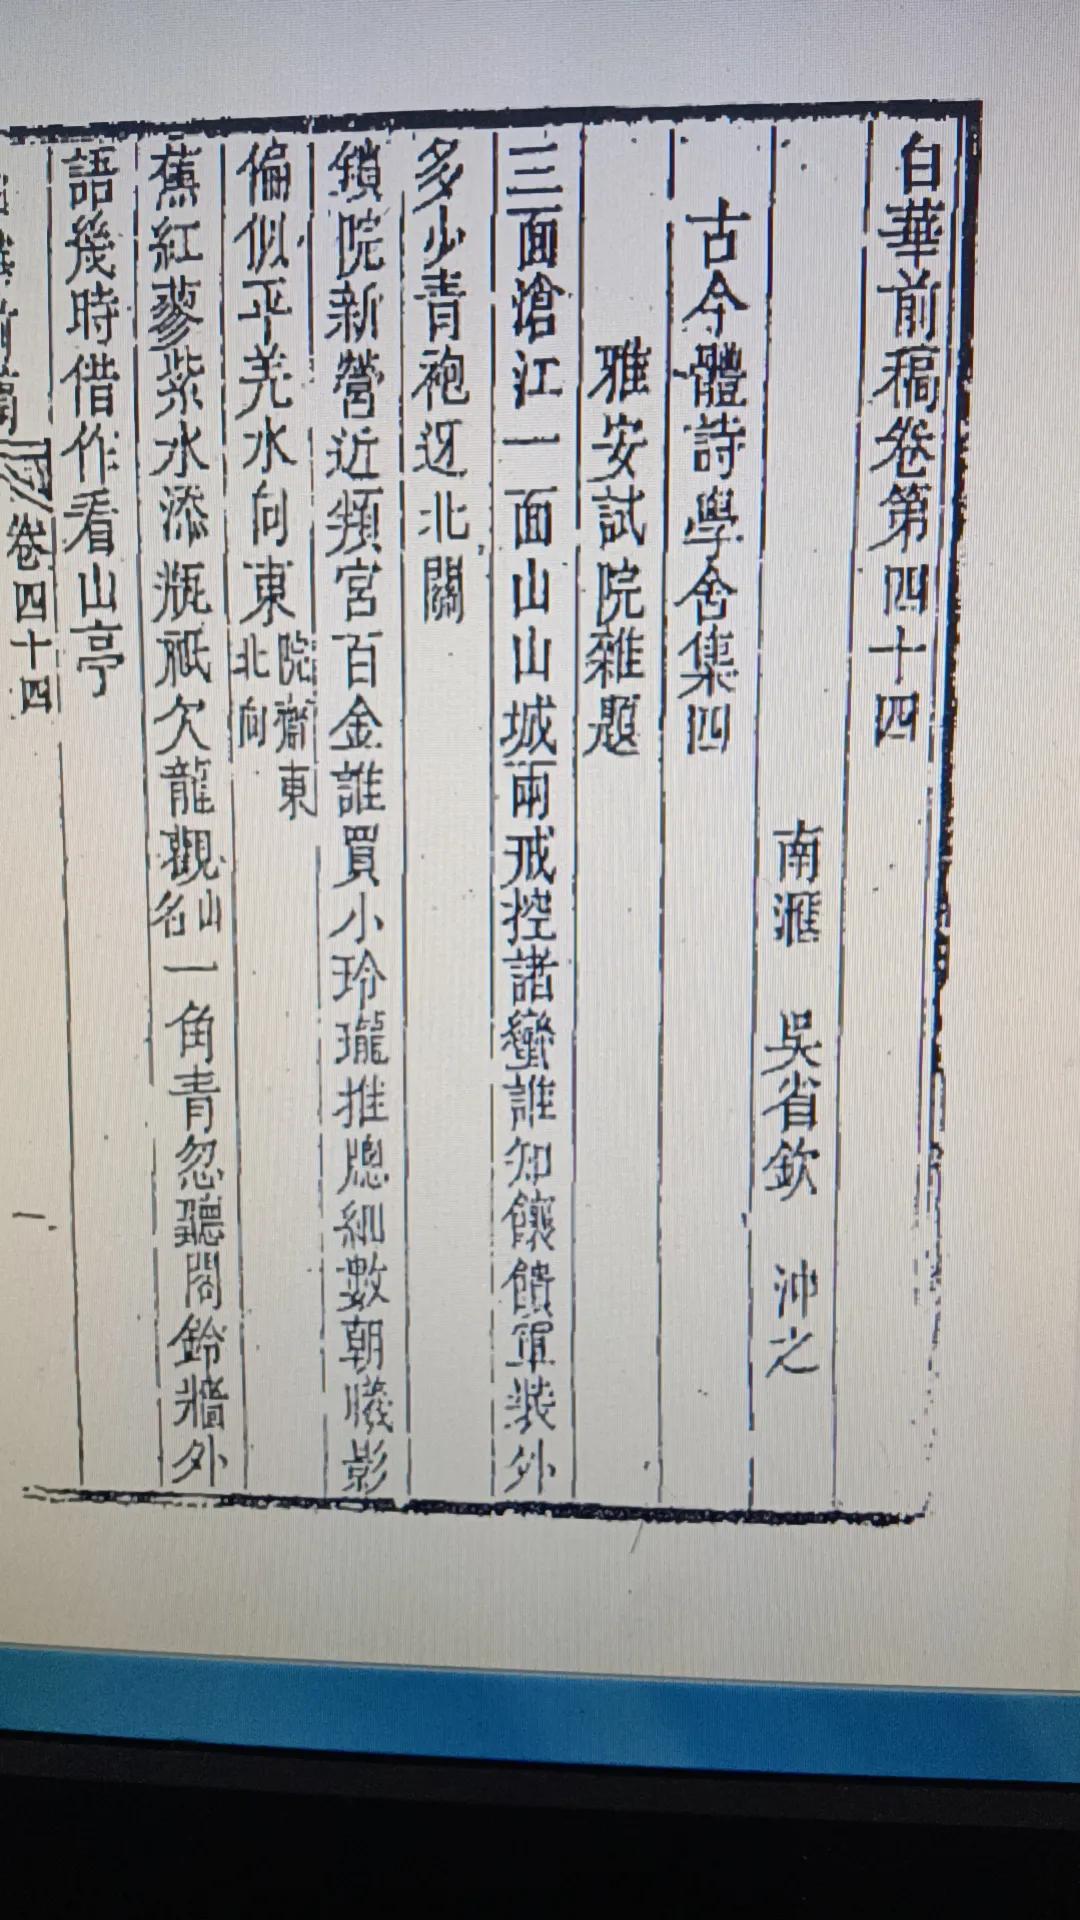 白華前稿卷第四十四
南滙 吳省欽 沖之
古今體詩學舍集四
雅安試院雜題
三面滄江一面山山城兩戒控諸蠻誰知饟饋軍裝外
多少青袍迓北關
鎖院新營近頖宮百金誰買小玲瓏推牕細數朝曦影
偏似平羌水向東院齋東北向
蕉紅蓼紫水添瓶祇欠龍觀山名一角青忽聽閣鈴牆外
語幾時借作看山亭
卷四十四
一